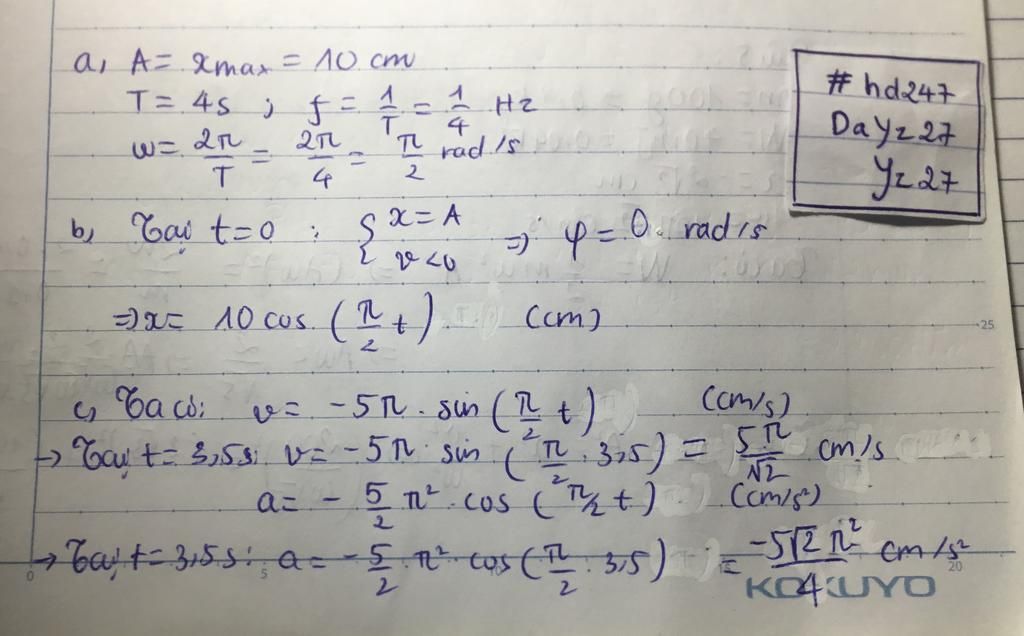 a, A = xmax = 10 cm
T = 4s ; f = 1/T = 1/4 Hz
ω = 2π/T = 2π/4 = π/2 rad/s
# hd247
Dayz27
Yz27
b, Tại t=0 : { x=A
v<0 => φ = 0. rad/s
=> x = 10 cos (π/2 t) (cm)
25
c, Ta có: v = -5π . sin (π/2 t) (cm/s)
→ Tại t = 3,5s: v = -5π sin (π/2 . 3,5) = 5π/√2 cm/s
a = - 5/2 π² . cos (π/2 t) (cm/s²)
→ Tại t = 3,5s : a = - 5/2 π² . cos (π/2 . 3,5) = -5√2 π²/4 cm/s²
0 5 20
KOKUYO